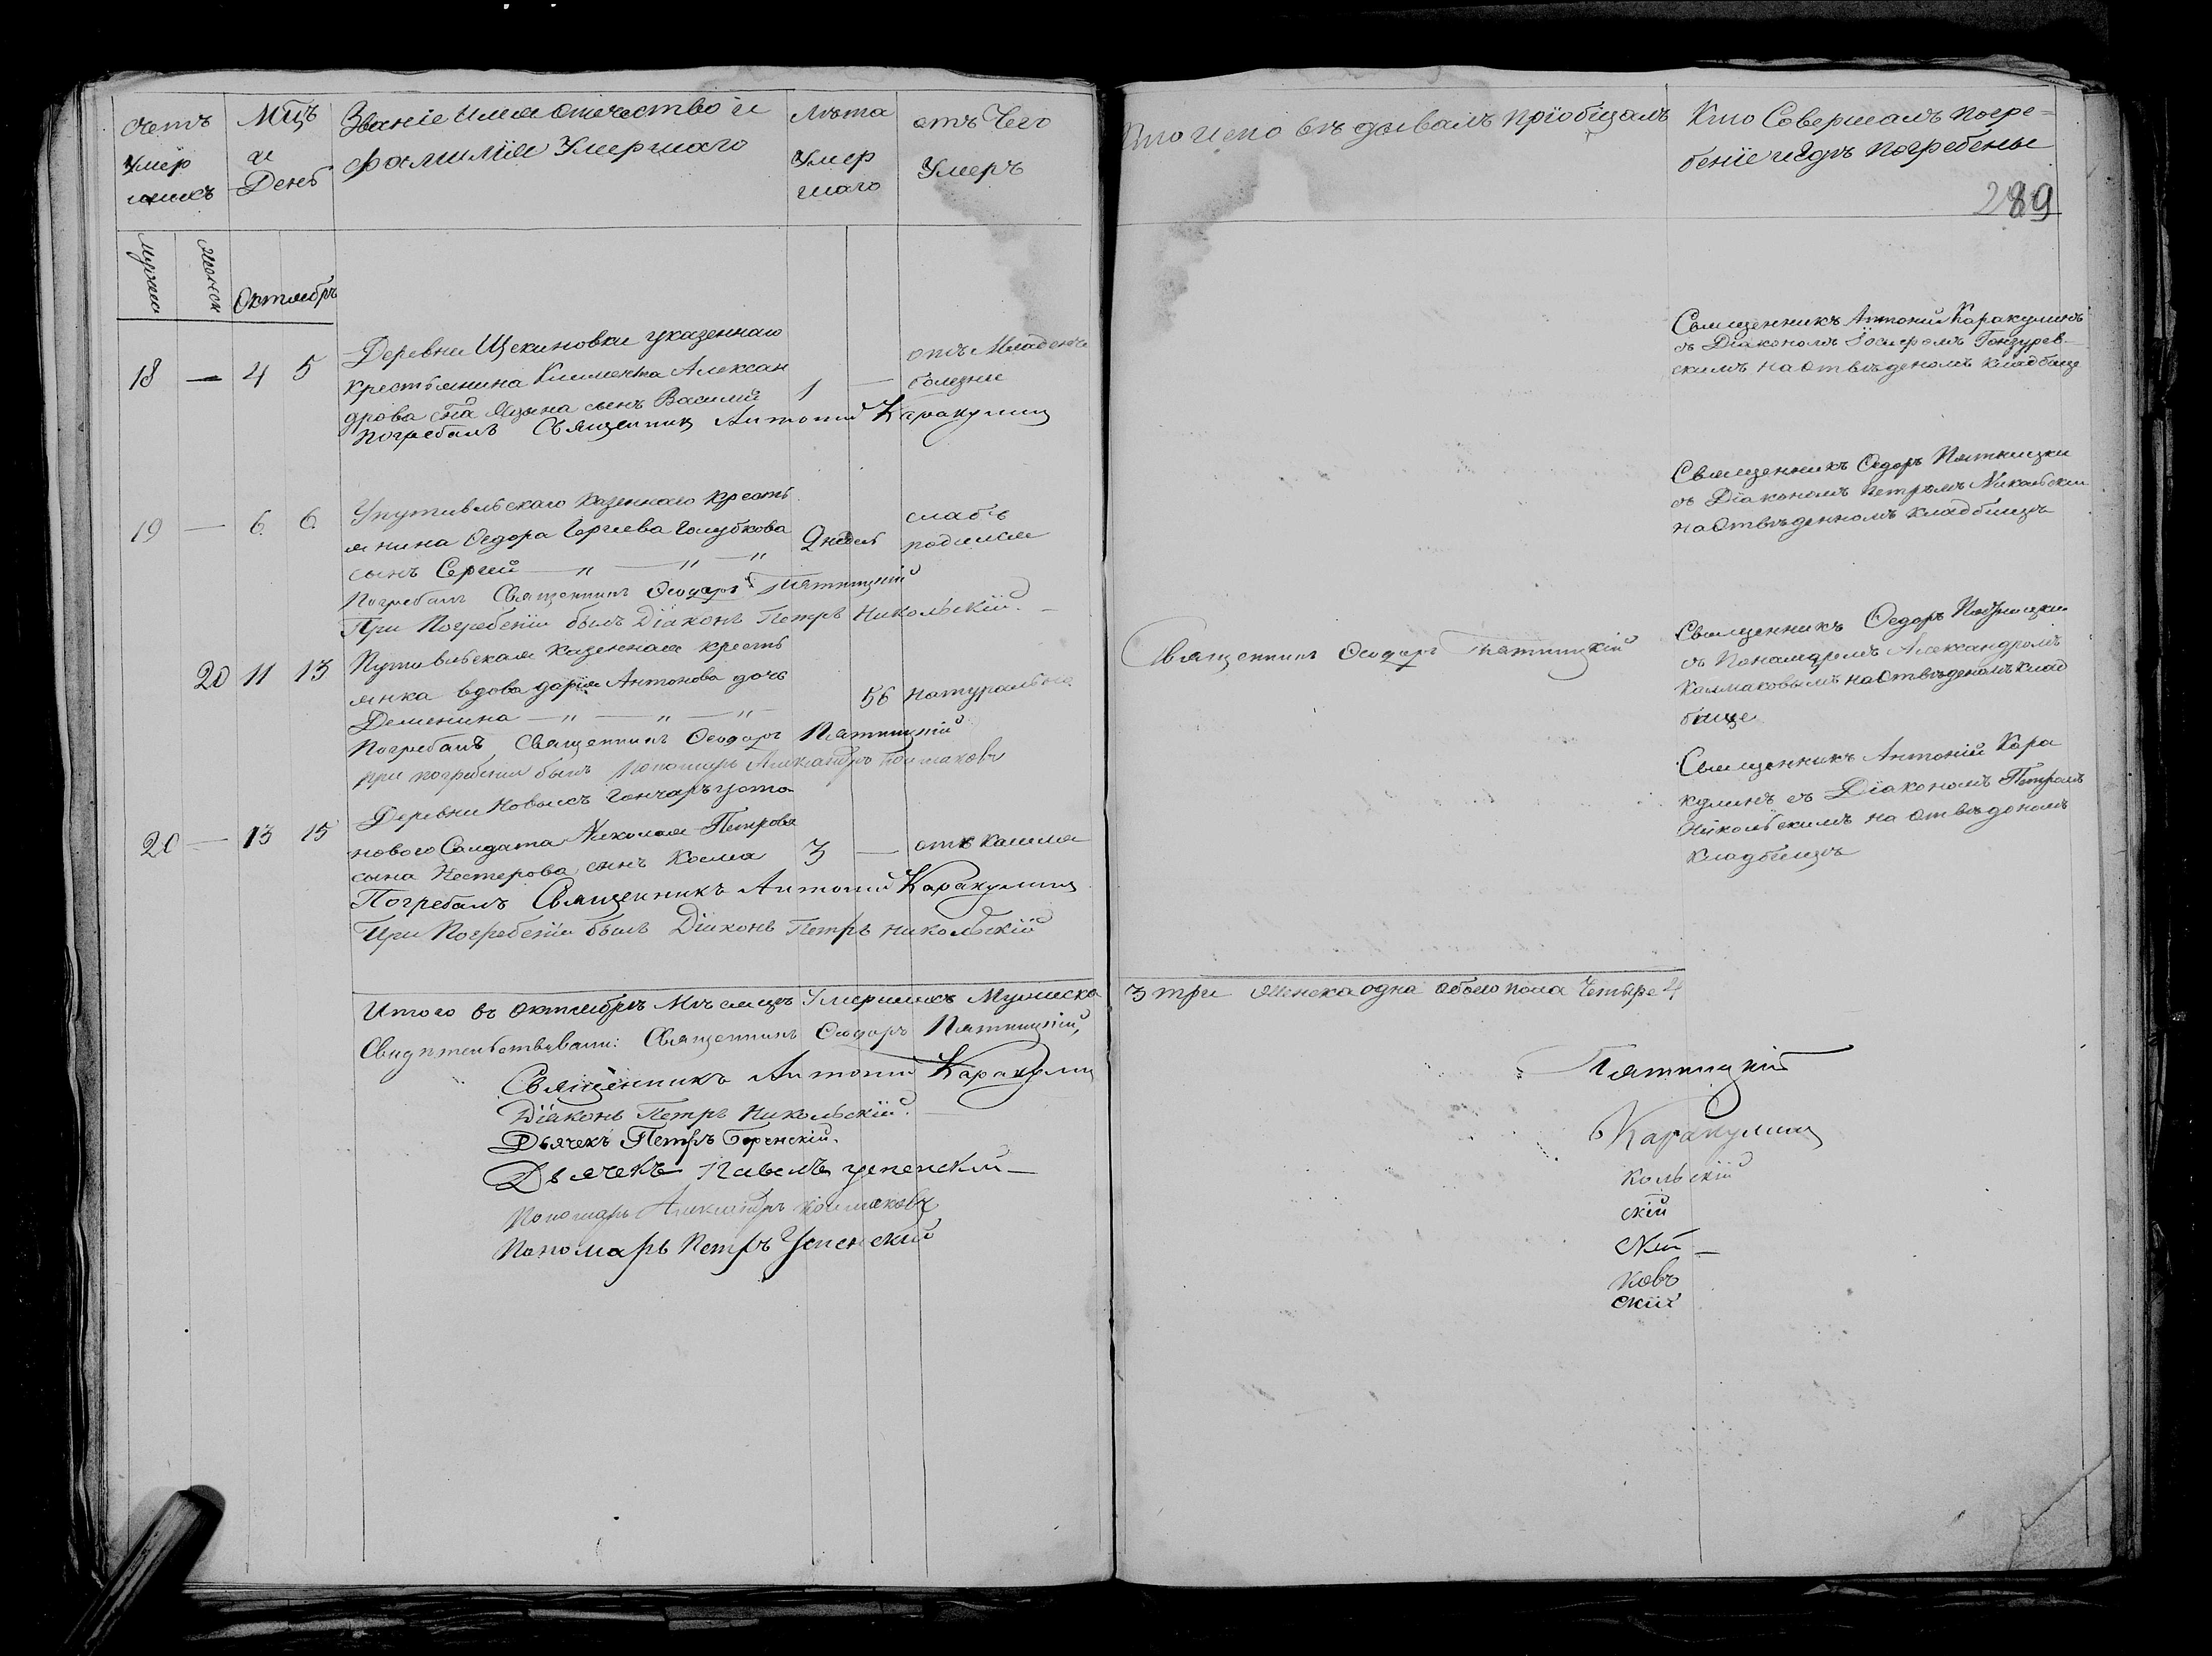 Счетъ умер шихъ
Мцъ и День
Званіе имя отечество и
фамилія Умершаго
Лѣта Умер шаго
отъ Чего Умеръ
Кто исповѣдывалъ пріобщалъ
Кто Совершалъ погре=
беніе и гдѣ погребены
289
Мужеск
Женск
Октябрь
18 — 4 5
Деревни Щекиновки указеннаго
крестьянина Климента Алексан
дрова сна Язына сынъ Василій
1 —
отъ Младенче
болезни
Погребалъ Священникъ Антоній Каракулинъ
Священникъ Антоній Каракулинъ
съ Діакономъ Іосифомъ
скимъ на отвѣденомъ кладбище
19 — 6 6
Упутивльскаго казеннаго кресть
янина Федора Сергіева Голубкова
сынъ Сергій — " — " — "
2 недѣль
слабъ
родился
Погребалъ Священникъ Ѳеодоръ Пятницкій
При Погребеніи былъ Діаконъ Петръ Никольскій. —
Священникъ Ѳедоръ Пятницки
съ Діакономъ Петромъ Никольски
на Отвѣденномъ кладбищѣ
20 11 13
Путивльская казенная кресть
янка вдова Дарія Антонова дочь
Деменина — " — " — " —
56 натурально
Священникъ Ѳеодоръ Пятницкій
Погребалъ Священникъ Ѳеодоръ Пятницкій
при погребеніи былъ Пономарь Александръ Колмаковъ
Священникъ Ѳедоръ Пятницки
съ Понамаремъ Александромъ
Калмаковымъ на Отвѣденомъ клад
бище
20 — 13 15
Деревни Новыхъ Гончаръ
нового Солдата Николая Петрова
сына Нестерова сынъ Косма
3 —
отъ кашля
Погребалъ Священникъ Антоній Каракулинъ
При Погребеніи былъ Діаконъ Петръ Никольскій
Священникъ Антоній Кара
кулинъ съ Діакономъ Петромъ
Никольскимъ на отвѣдономъ
кладбищѣ
Итого въ октябрѣ Мѣсяцѣ Умершихъ Мужеска 3 три женска одна обоего пола Четыре 4
Свидѣтельствовали: Священникъ Ѳеодоръ Пятницкій,
Священникъ Антоній Каракулинъ
Діаконъ Петръ Никольскій.
Дьячекъ Петръ
Дьячекъ Павелъ Успенскій —
Пономарь Александръ Колмаковъ
Пономарь Петръ Успенскій
Пятницкій
Каракулинъ
кольскій
скій
скій —
ковъ
скій